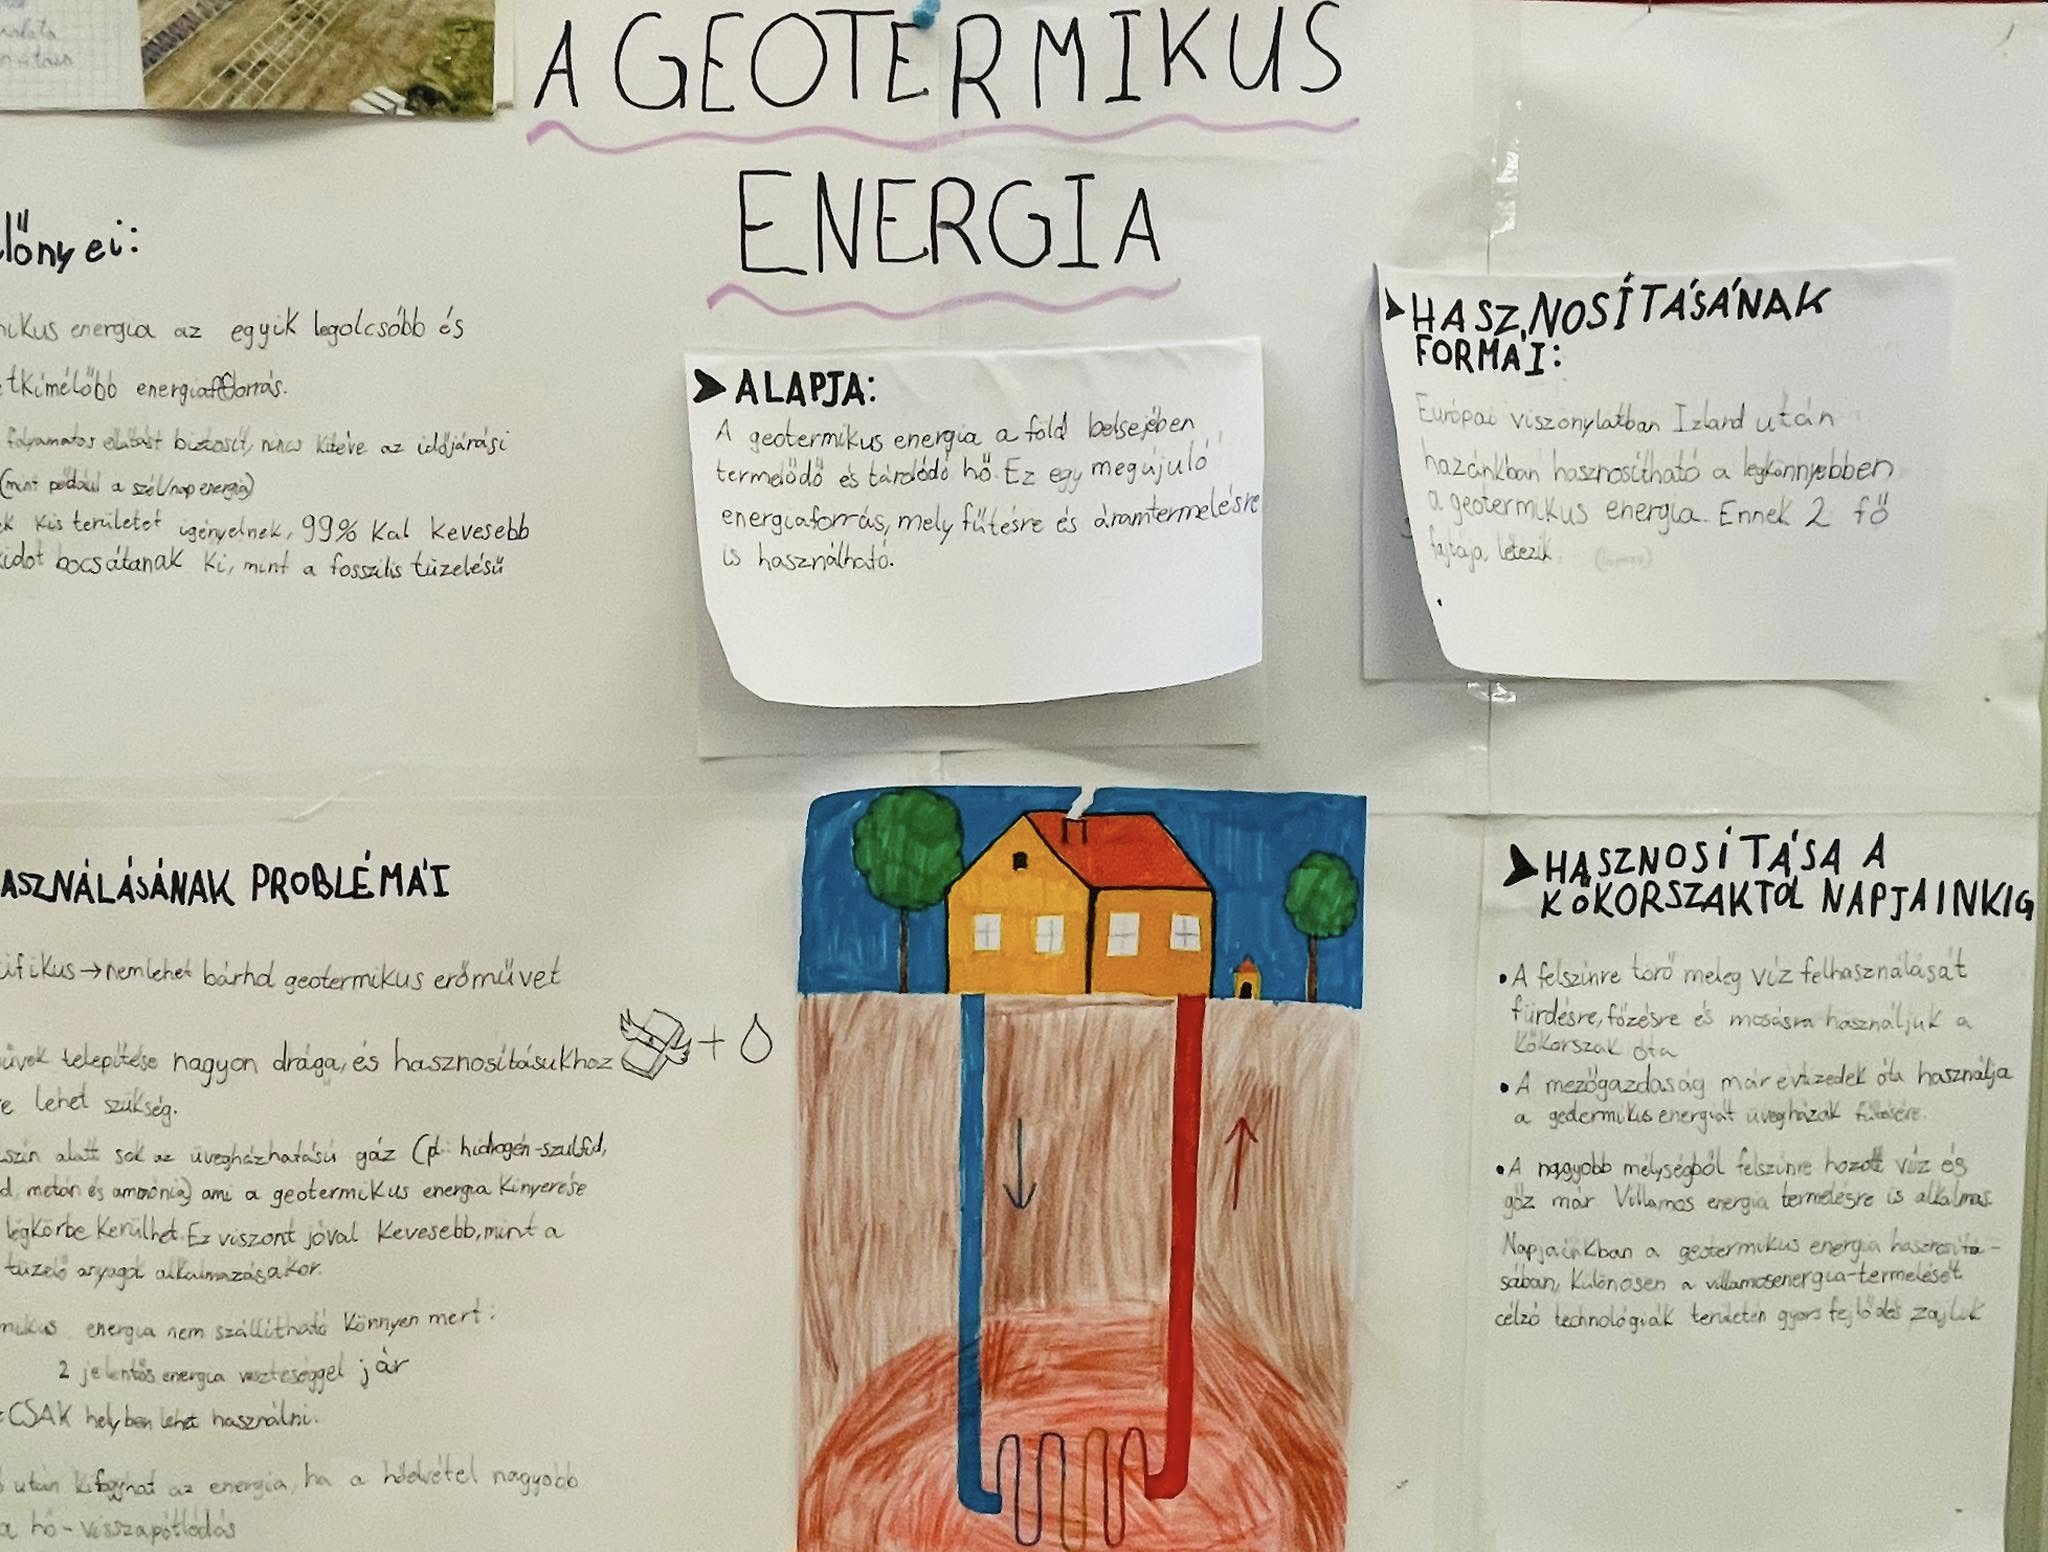 A GEOTERMIKUS
ENERGIA
lőnyei:
mikus energia az egyik legolcsóbb és
tkímélőbb energiaforrás.
folyamatos ellátást biztosít, nincs kitéve az időjárási
(mint például a szél/nap energia)
ek kis területet igényelnek, 99% kal kevesebb
idot bocsátanak ki, mint a fosszilis tüzelésű
ALAPJA:
A geotermikus energia a föld belsejében
termelődő és tárolódó hő. Ez egy megújuló
energiaforrás, mely fűtésre és áramtermelésre
is használható.
HASZNOSÍTÁSÁNAK
FORMÁI:
Európai viszonylatban Izland után
hazánkban hasznosítható a legkönnyebben
a geotermikus energia. Ennek 2 fő
fajtája létezik.
ASZNÁLÁSÁNAK PROBLÉMÁI
ifikus → nemlehet bárhol geotermikus erőművet
űvek telepítése nagyon drága, és hasznosításukhoz
re lehet szükség.
+
szín alatt sok az üvegházhatású gáz (pl: hidrogén-szulfid,
d, metán és ammónia) ami a geotermikus energia kinyerése
légkörbe kerülhet. Ez viszont jóval kevesebb, mint a
tüzelő anyagok alkalmazásakor.
mikus energia nem szállítható könnyen mert:
2 jelentős energia veszteséggel jár
CSAK helyben lehet használni.
ő után kifogyhat az energia, ha a hőelvétel nagyobb
a hő-visszapótlódás
HASZNOSÍTÁSA A
KŐKORSZAKTÓL NAPJAINKIG
• A felszínre törő meleg víz felhasználását
fürdésre, főzésre és mosásra használjuk a
kőkorszak óta
• A mezőgazdaság már évtizedek óta használja
a geotermikus energiát üvegházak fűtésére.
• A nagyobb mélységből felszínre hozott víz és
gőz már Villamos energia termelésre is alkalmas.
Napjainkban a geotermikus energia hasznosítá-
sában, különösen a villamosenergia-termelését
célzó technológiák területén gyors fejlődés zajlik